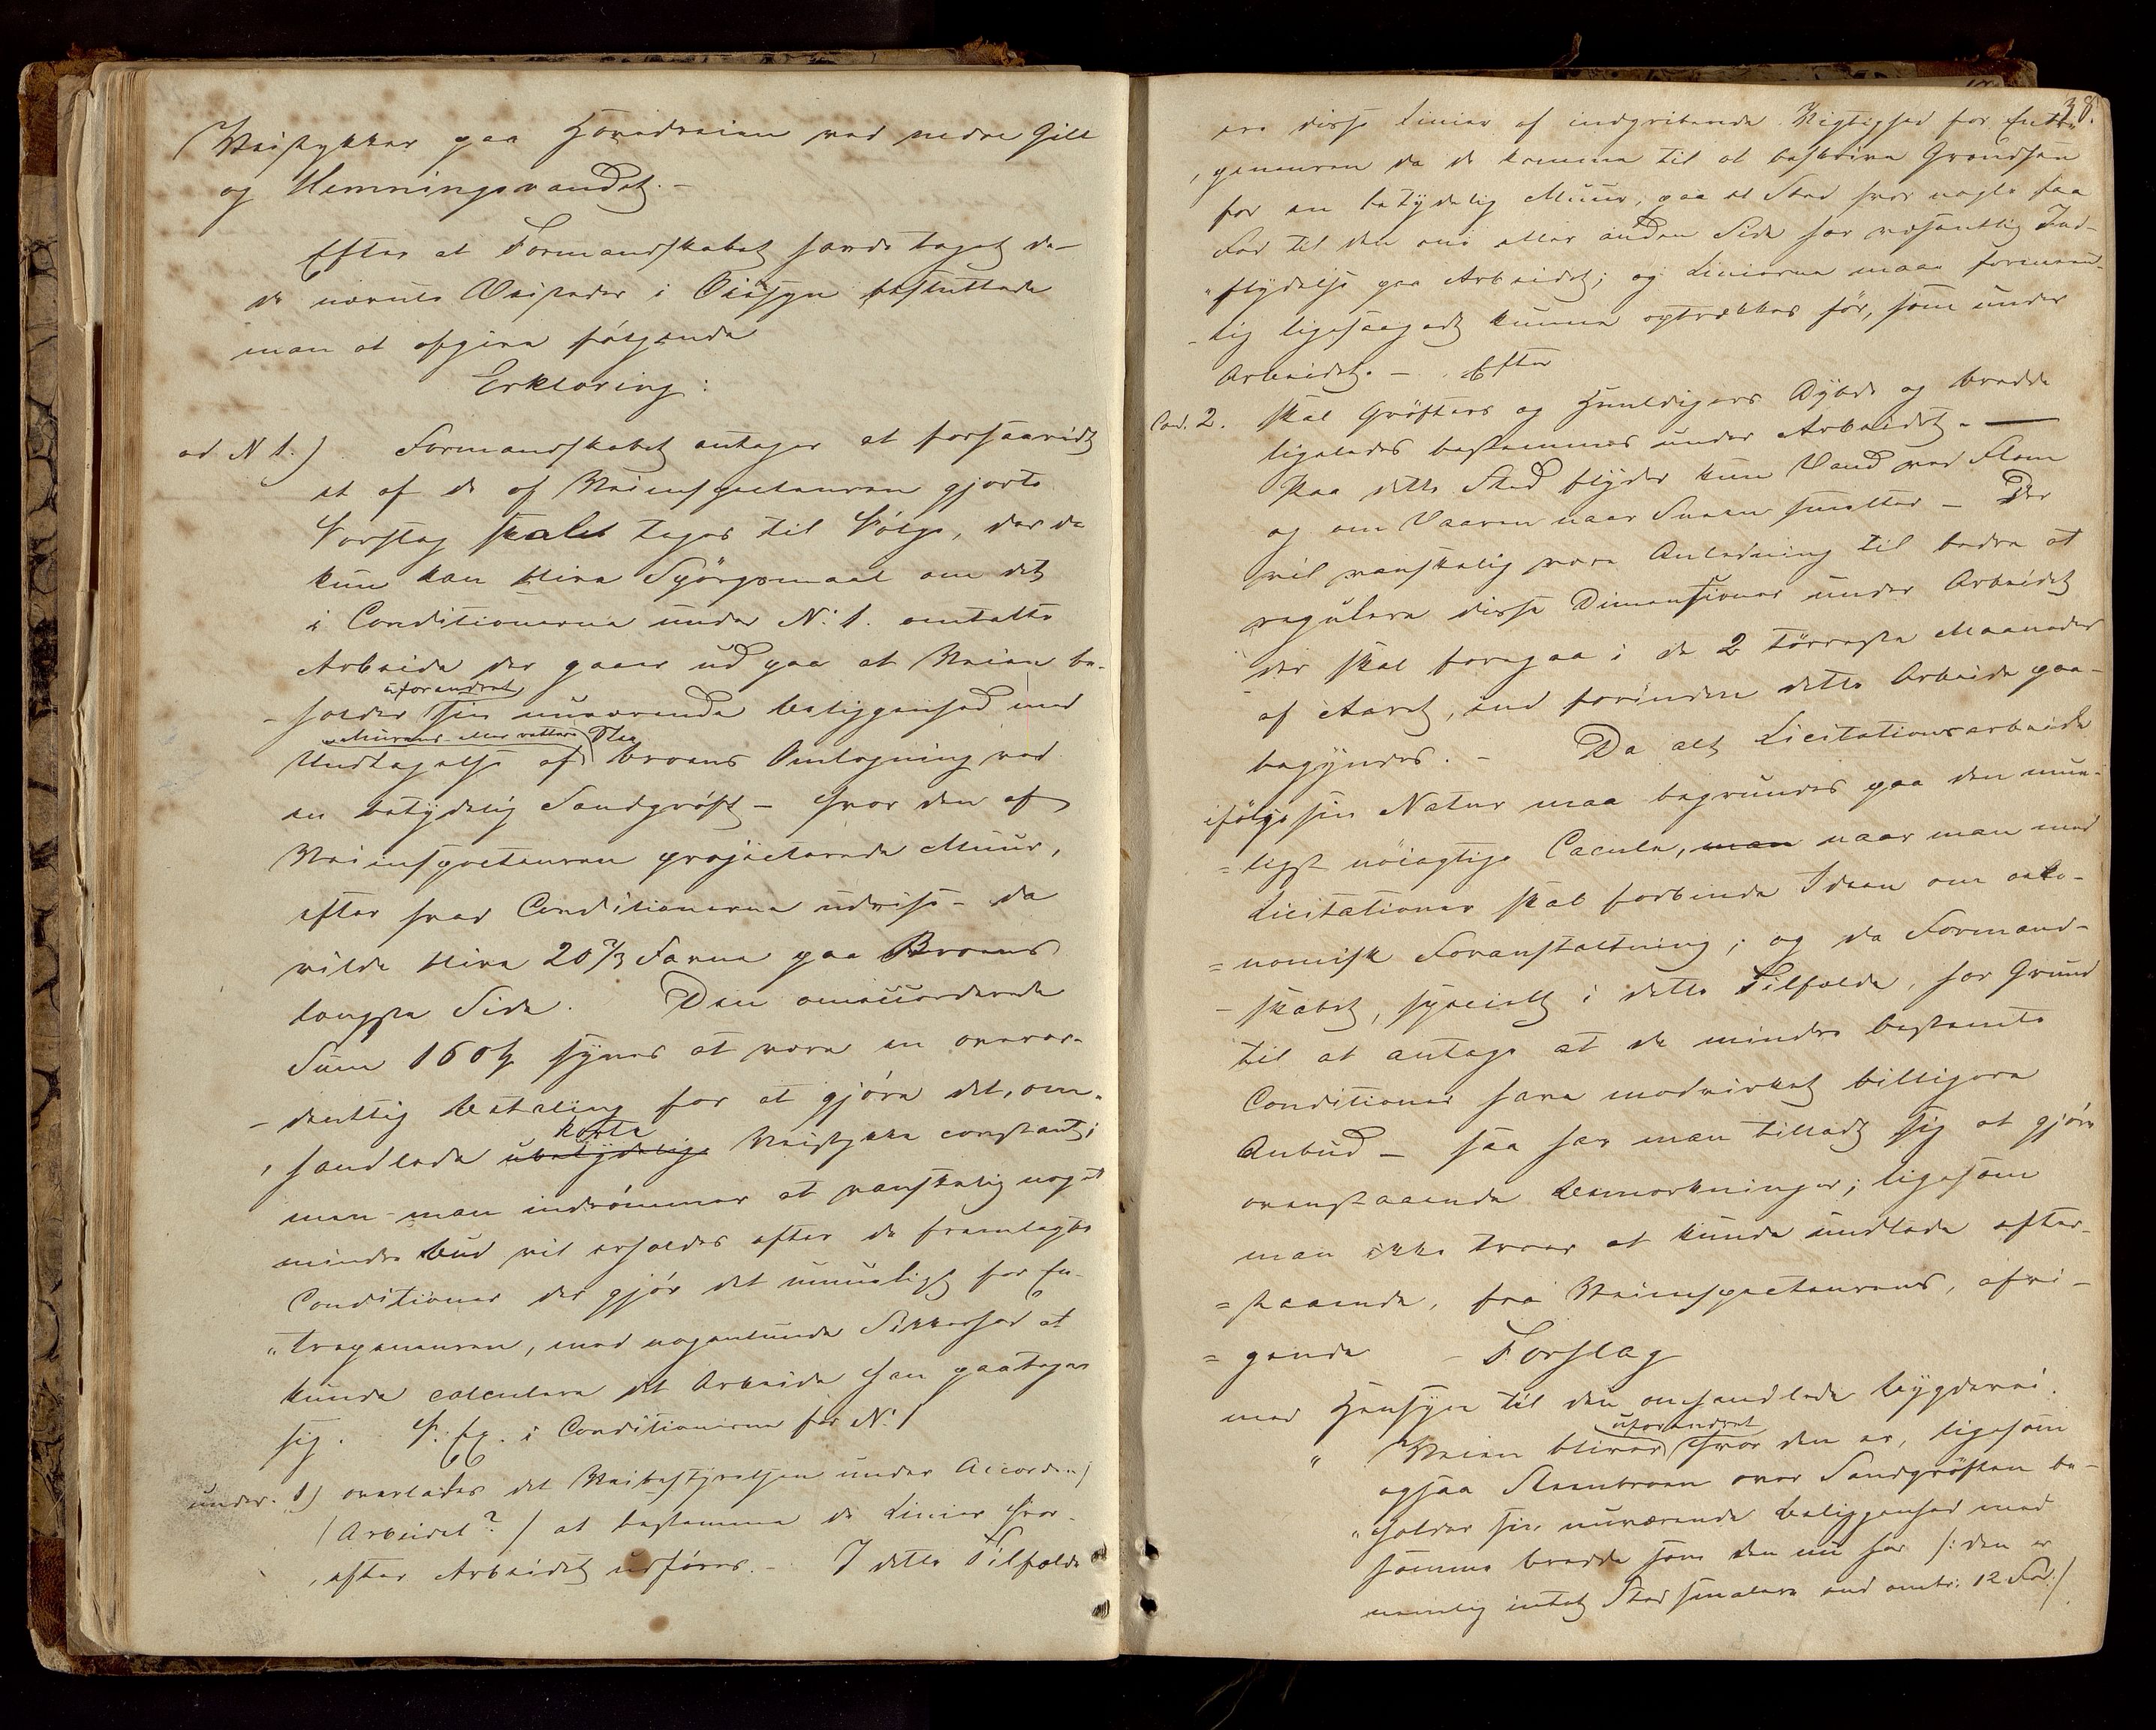 Veistykker paa Hovedveien ved nedre Gill
og Hemningsvandet. -
Efter at Formandskabet havde taget de
de nævnte Veisteder i Øiesyn besluttede
man at afgive følgende
Erklæring:
ad N 1.) Formandskabet antager at forsaavidt
et af de af Veiinspecteuren gjorte
Forslag skulde tages til Følge, der da
kun kan blive Spörgsmaal om det
i Conditionerne under No 1. omtalte
Arbeide der gaaer ud paa at Veien be-
uforandret
- holder sin nuværende Beliggenhed med
Murens eller rettere Sten
Undtagelse af Broens Omlægning ved
en betydelig Sandgröft - hvor den af
Veiinspecteuren projecterede Muur,
efter hvad Conditionerne udvise - da
vilde blive 20 2/3 Favne paa Broens
længste Side. Den omvurderede
Sum 160 ß synes at være en overor-
- dentlig Betaling for at gjöre det, om-
korte
, handlede ubetydelige Veistykke constant;
men - man indrömmer at vanskelig noget
mindre Bud vil erholdes efter de fremlagte
Conditioner der gjör det umueligt for En-
„ trepeneuren, med nogenlunde Sikkerhed at
kunde calculere det Arbeide han paatager
sig. F. Ex. i Conditionerne for No 1
under. 1) overlades det Veibestyrelsen under Accorden
(Arbeidet?) at bestemme de Linier hvor-
, efter Arbeidet udföres. - I dette Tilfælde
38.
ere disse Linier af indgribende Vigtighed for Entre
, peneuren da de komme til at beskrive Grændsen
for en betydelig Muur, paa et Sted hvor nogle faa
Fod til den ene eller anden Side har væsentlig Ind-
„ flydelse paa Arbeidet; og Linierne maae formeent-
- lig ligesaagodt kunne optrækkes för, som under
Arbeidet. - Efter
Cond. 2. skal Gröfters og Huuldigers Dybde og bredde
ligeledes bestemmes under Arbeidet. —
Paa dette Sted flyder kun Vand ved Flom
og om Vaaren naar Sneen smelter - Der
vil vanskelig være Anledning til bedre at
regulere disse Dimensioner under Arbeidet
der skal foregaa i de 2 törreste Maaneder
af Aaret, end forinden dette Arbeide paa-
begyndes. - Da alt Licitationsarbeide
ifölge sin Natur maa begrundes paa den mue-
= ligst nöiagtige Calcule, man naar man med
Licitationer skal forbinde Ideen om oeko-
= nomisk Foranstaltning; og da Formand-
- skabet, specielt i dette Tilfælde, har Grund
til at antage at de mindre bestemte
Conditioner have modvirket billigere
Anbud - saa har man tilladt sig at gjöre
ovenstaaende Bemærkninger; ligesom
man ikke troer at kunde undlade efter-
= staaende, fra Veiinspecteurens, afvi-
= gende - Forslag
med Hensyn til den omhandlede Bygdevei.
uforandret
" Veien bliver hvor den er, ligesom
ogsaa Steenbroen over Sandgröften be-
„ holder sin nuværende Beliggenhed med
samme bredde som den nu har /: den er
nemlig intet Sted smalere end omtr. 12 Fod:/